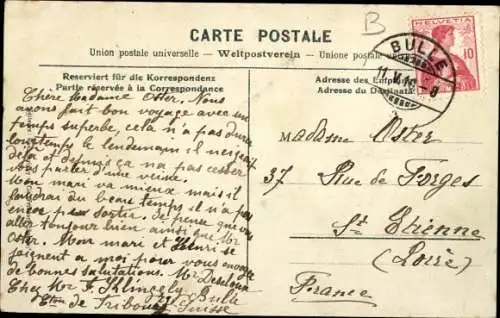 B
CARTE POSTALE
Union postale universelle. – Weltpostverein – Unione postale
HELVETIA
10
BULLE
11.V.10.-8
Reserviert für die Korrespondenz
Partie réservée à la Correspondance
Adresse des
Adresse du
Chère Madame Oster. Nous
avons fait bon voyage avec un
temps superbe, cela n'a pas duré
longtemps le lendemain il neigeait
déja et depuis ça na pas cesser
vous parler d'une veine.
Mon mari va mieux mais il
faudrai du beau temps il n'a pa
encor pu sortir. Je pense que vous
aller toujour bien ainsi que Mr
Oster. Mon mari et Henri se
joignent a moi pour vous envoyer
de bonnes salutations. M.
Chez Mr F. Klingely Bulle
Cton de Fribourg Suisse
Madame Oster
37 Rue de Forges
St Etienne
(Loire)
France